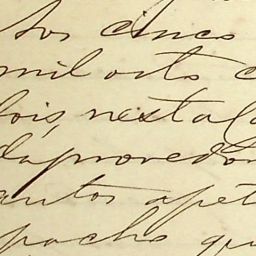 Aos cinco
mil oito c
dois, nesta C
da provedor
autos a pet
pacho qu